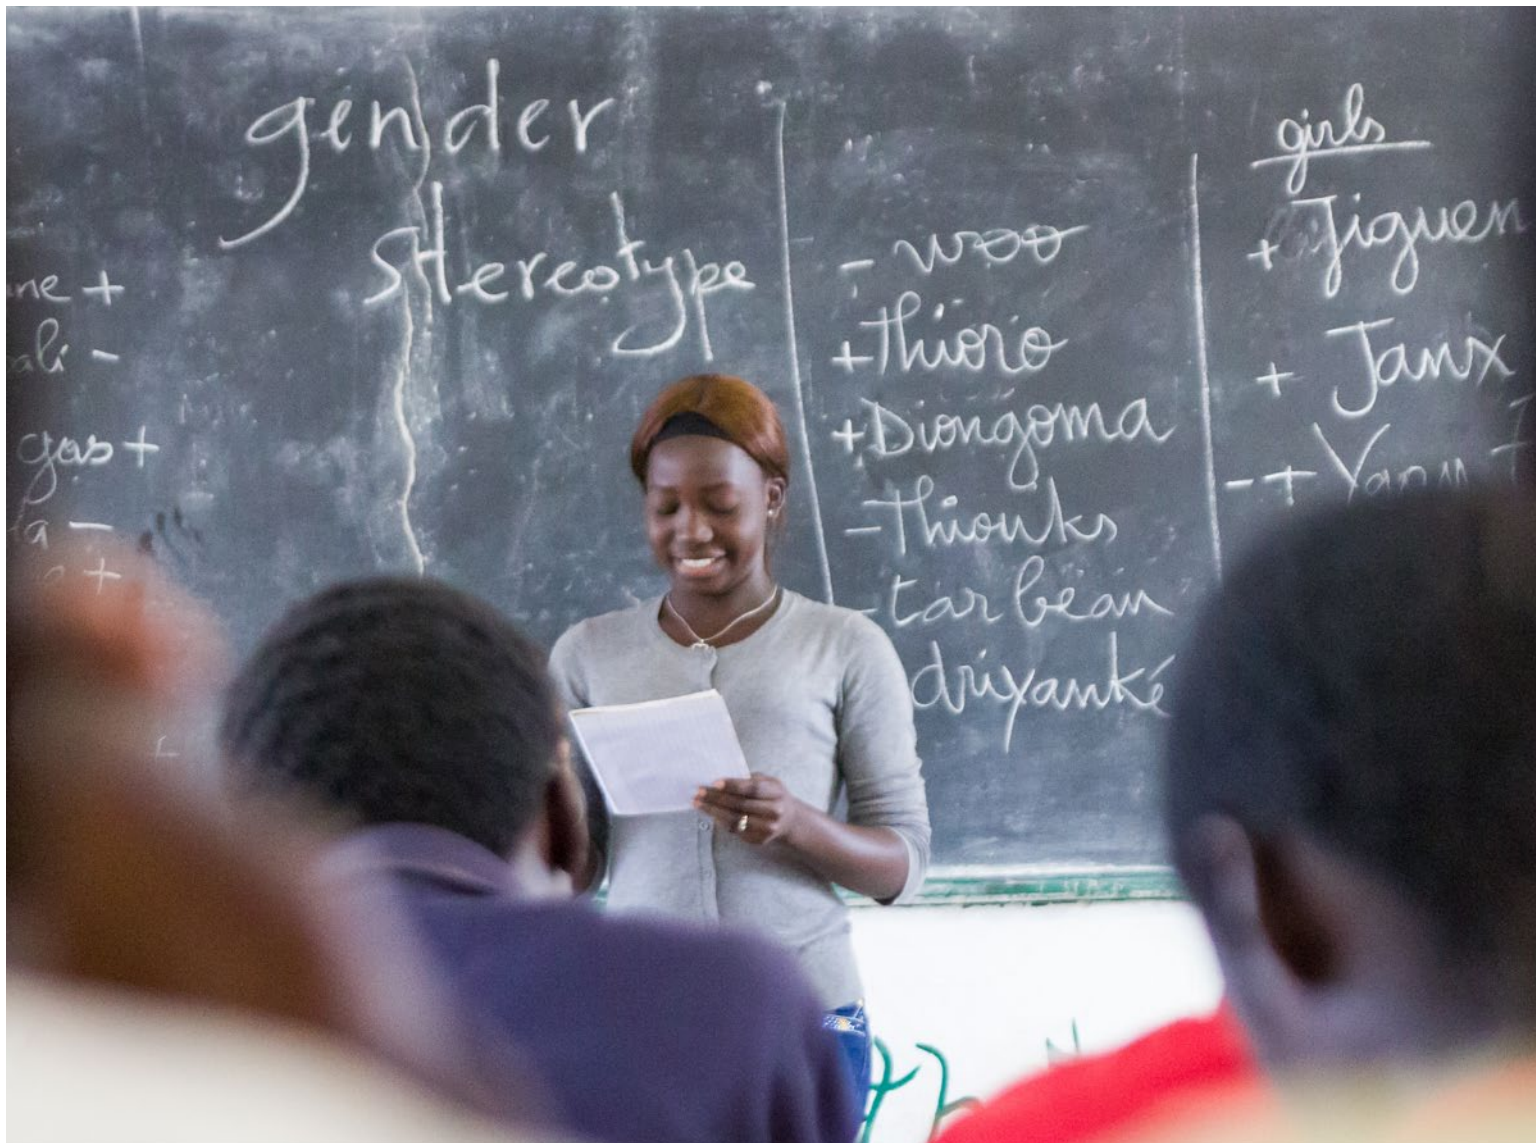 gender
stereotype
ne +
ali -
gas +
la -
+
- woo
+ Thioro
+ Diongoma
- Thiouks
- tar beau
driyanké
girls
+ Jiguen
+ Janx
- +